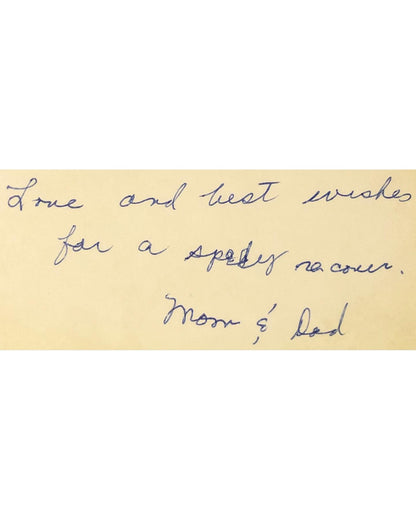 Love and best wishes
for a spedy recover.
Mom & Dad